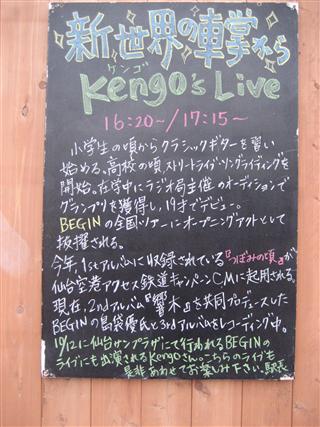 新世界の車掌から
ケンゴ
Kengo's Live
16:20〜/17:15〜
小学生の頃からクラシックギターを習い
始める。高校の頃、ストリートライブ・ソングライティングを
開始。在学中にラジオ局主催のオーディションで
グランプリを獲得し、19才でデビュー。
BEGINの全国ツアーにオープニングアクトとして
抜擢される。
今年、1stアルバムに収録されている『つぼみの頃』が
仙台空港アクセス鉄道キャンペーンCMに起用される。
現在、2ndアルバム『響木』を共同プロデュースした
BEGINの島袋優氏と3rdアルバムをレコーディング中。
10/12に仙台サンプラザにて行われるBEGINの
ライブにも出演されるKengoさん。こちらのライブも
是非あわせてお楽しみ下さい。駅長